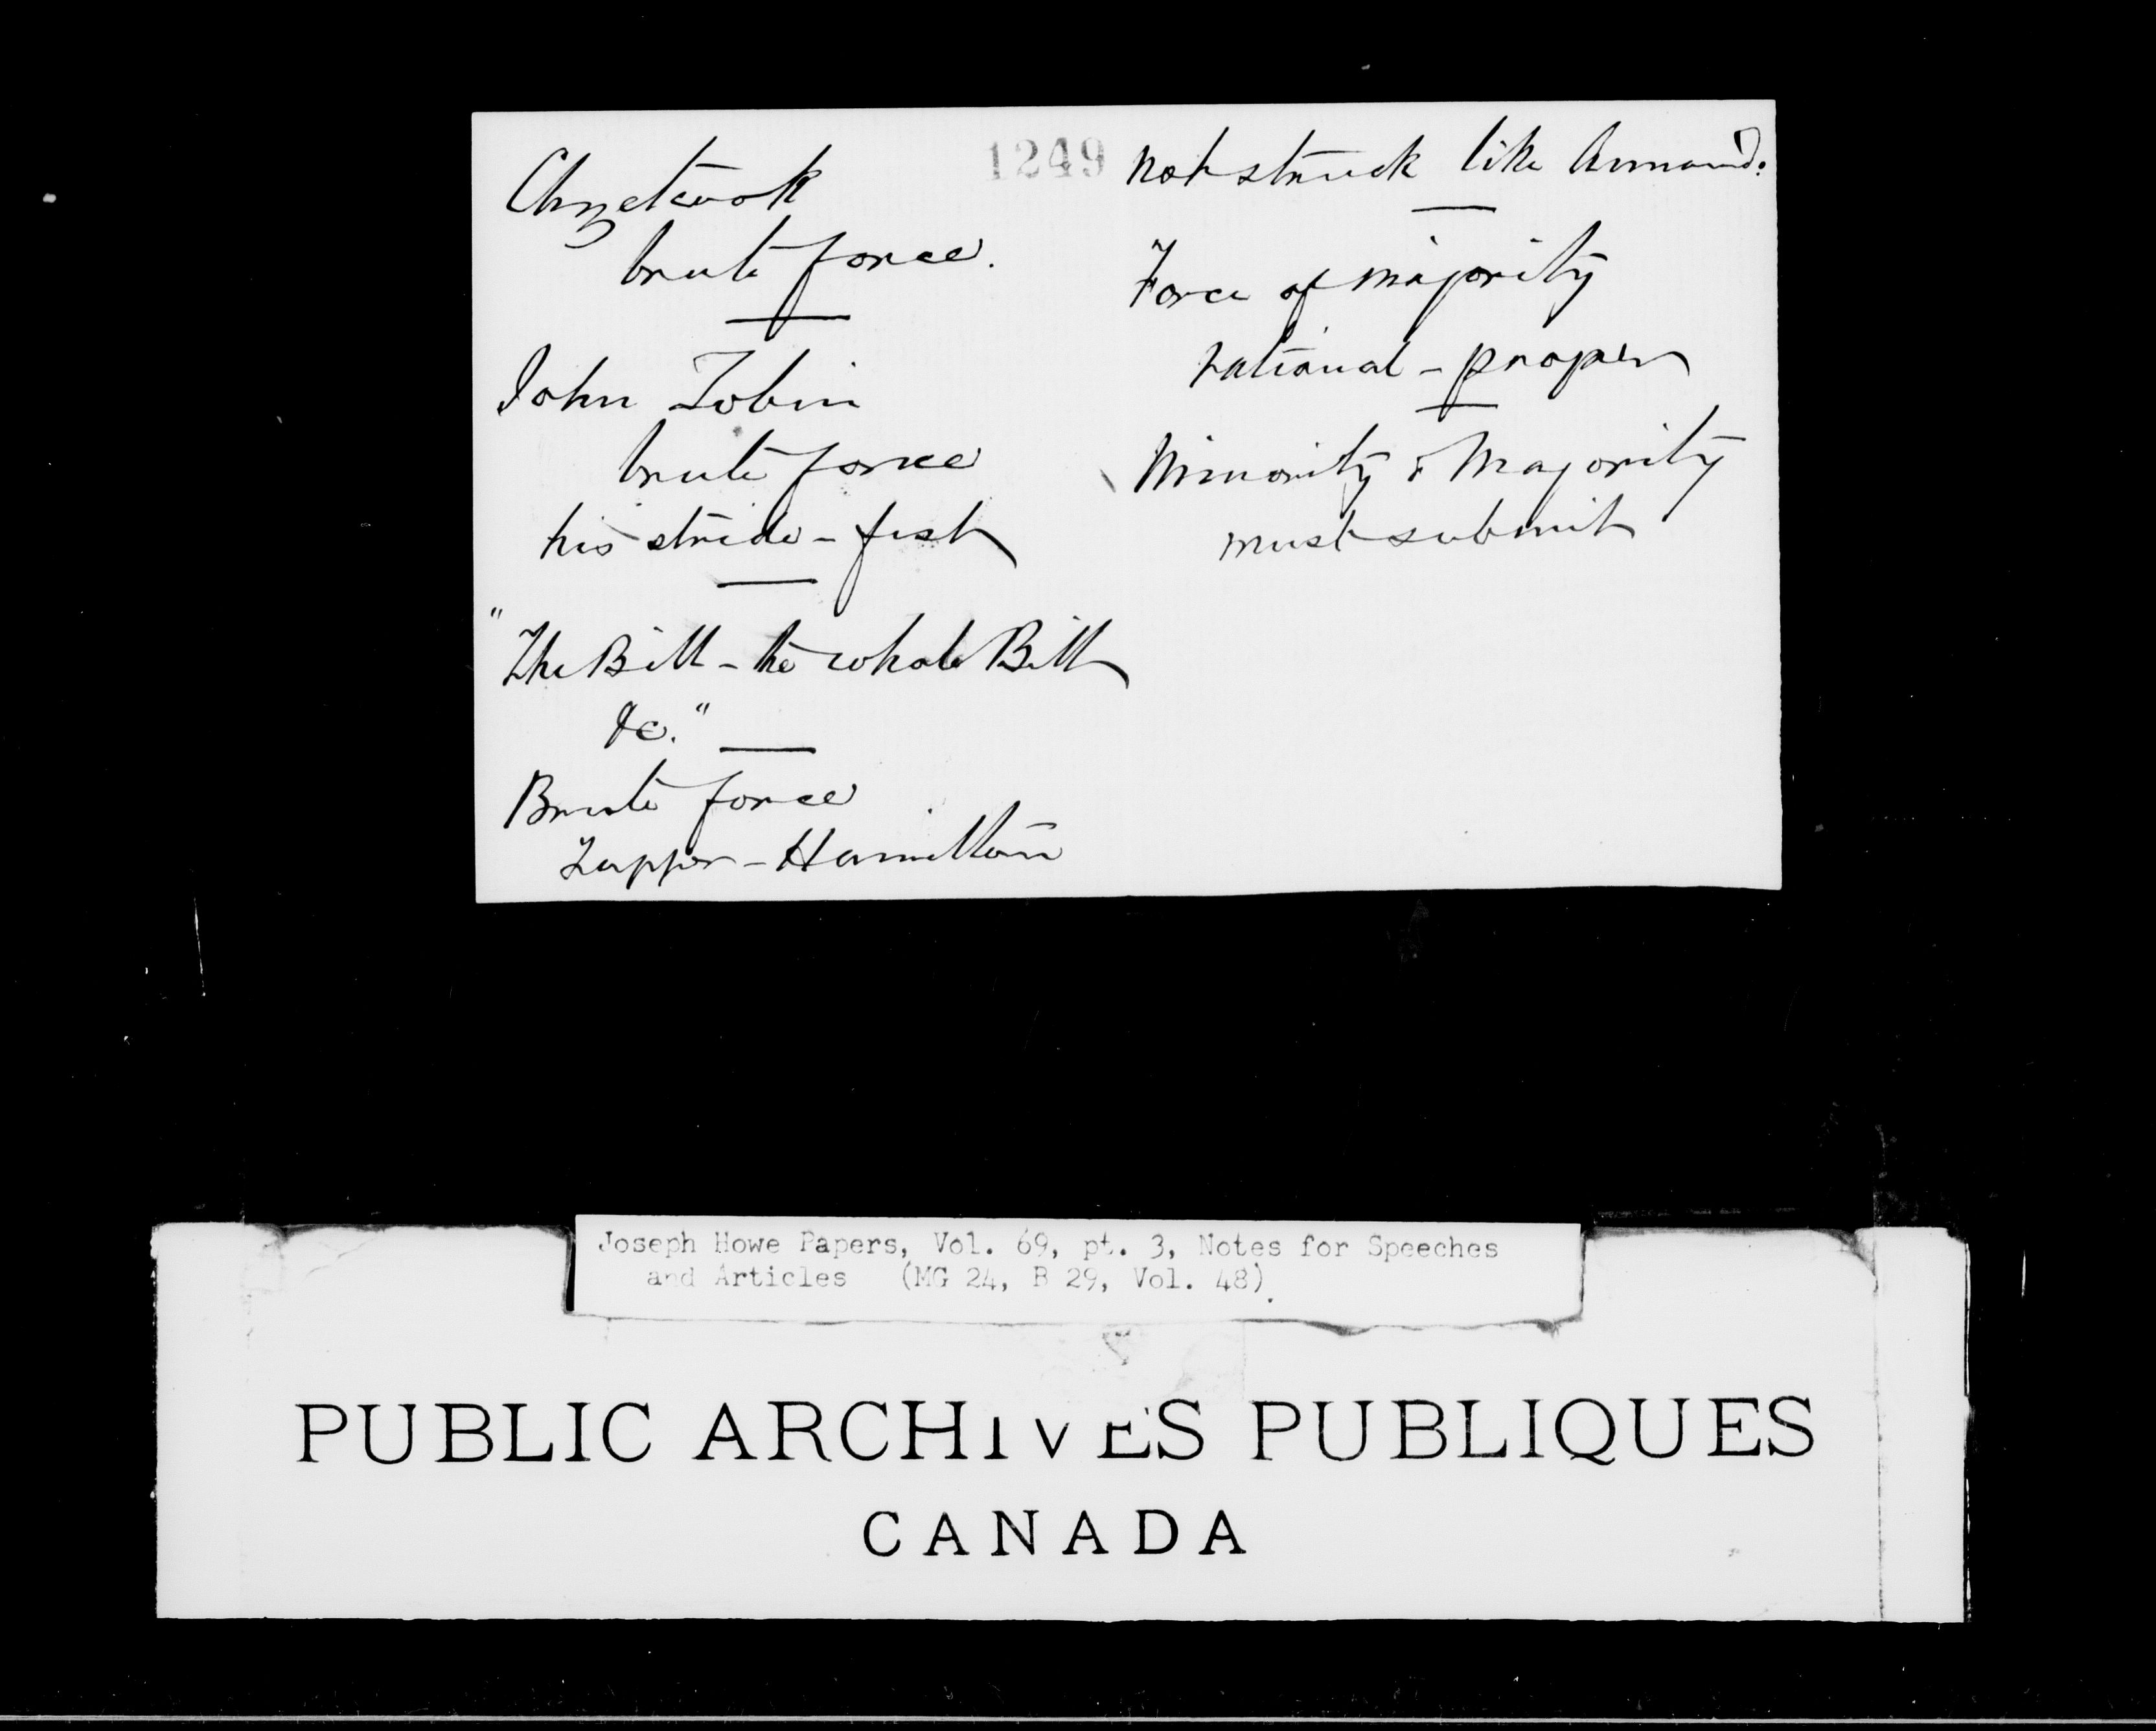 1249
Chezetcook
brute force.
John Tobin
brute force
his stride - fist
"The Bill - the whole Bill
&c."
Brute force
Tupper - Hamilton
not struck like Annand.
Force of majority
rational - proper
Minority & Majority
must submit
Joseph Howe Papers, Vol. 69, pt. 3, Notes for Speeches
and Articles (MG 24, B 29, Vol. 48).
PUBLIC ARCHIVES PUBLIQUES
CANADA